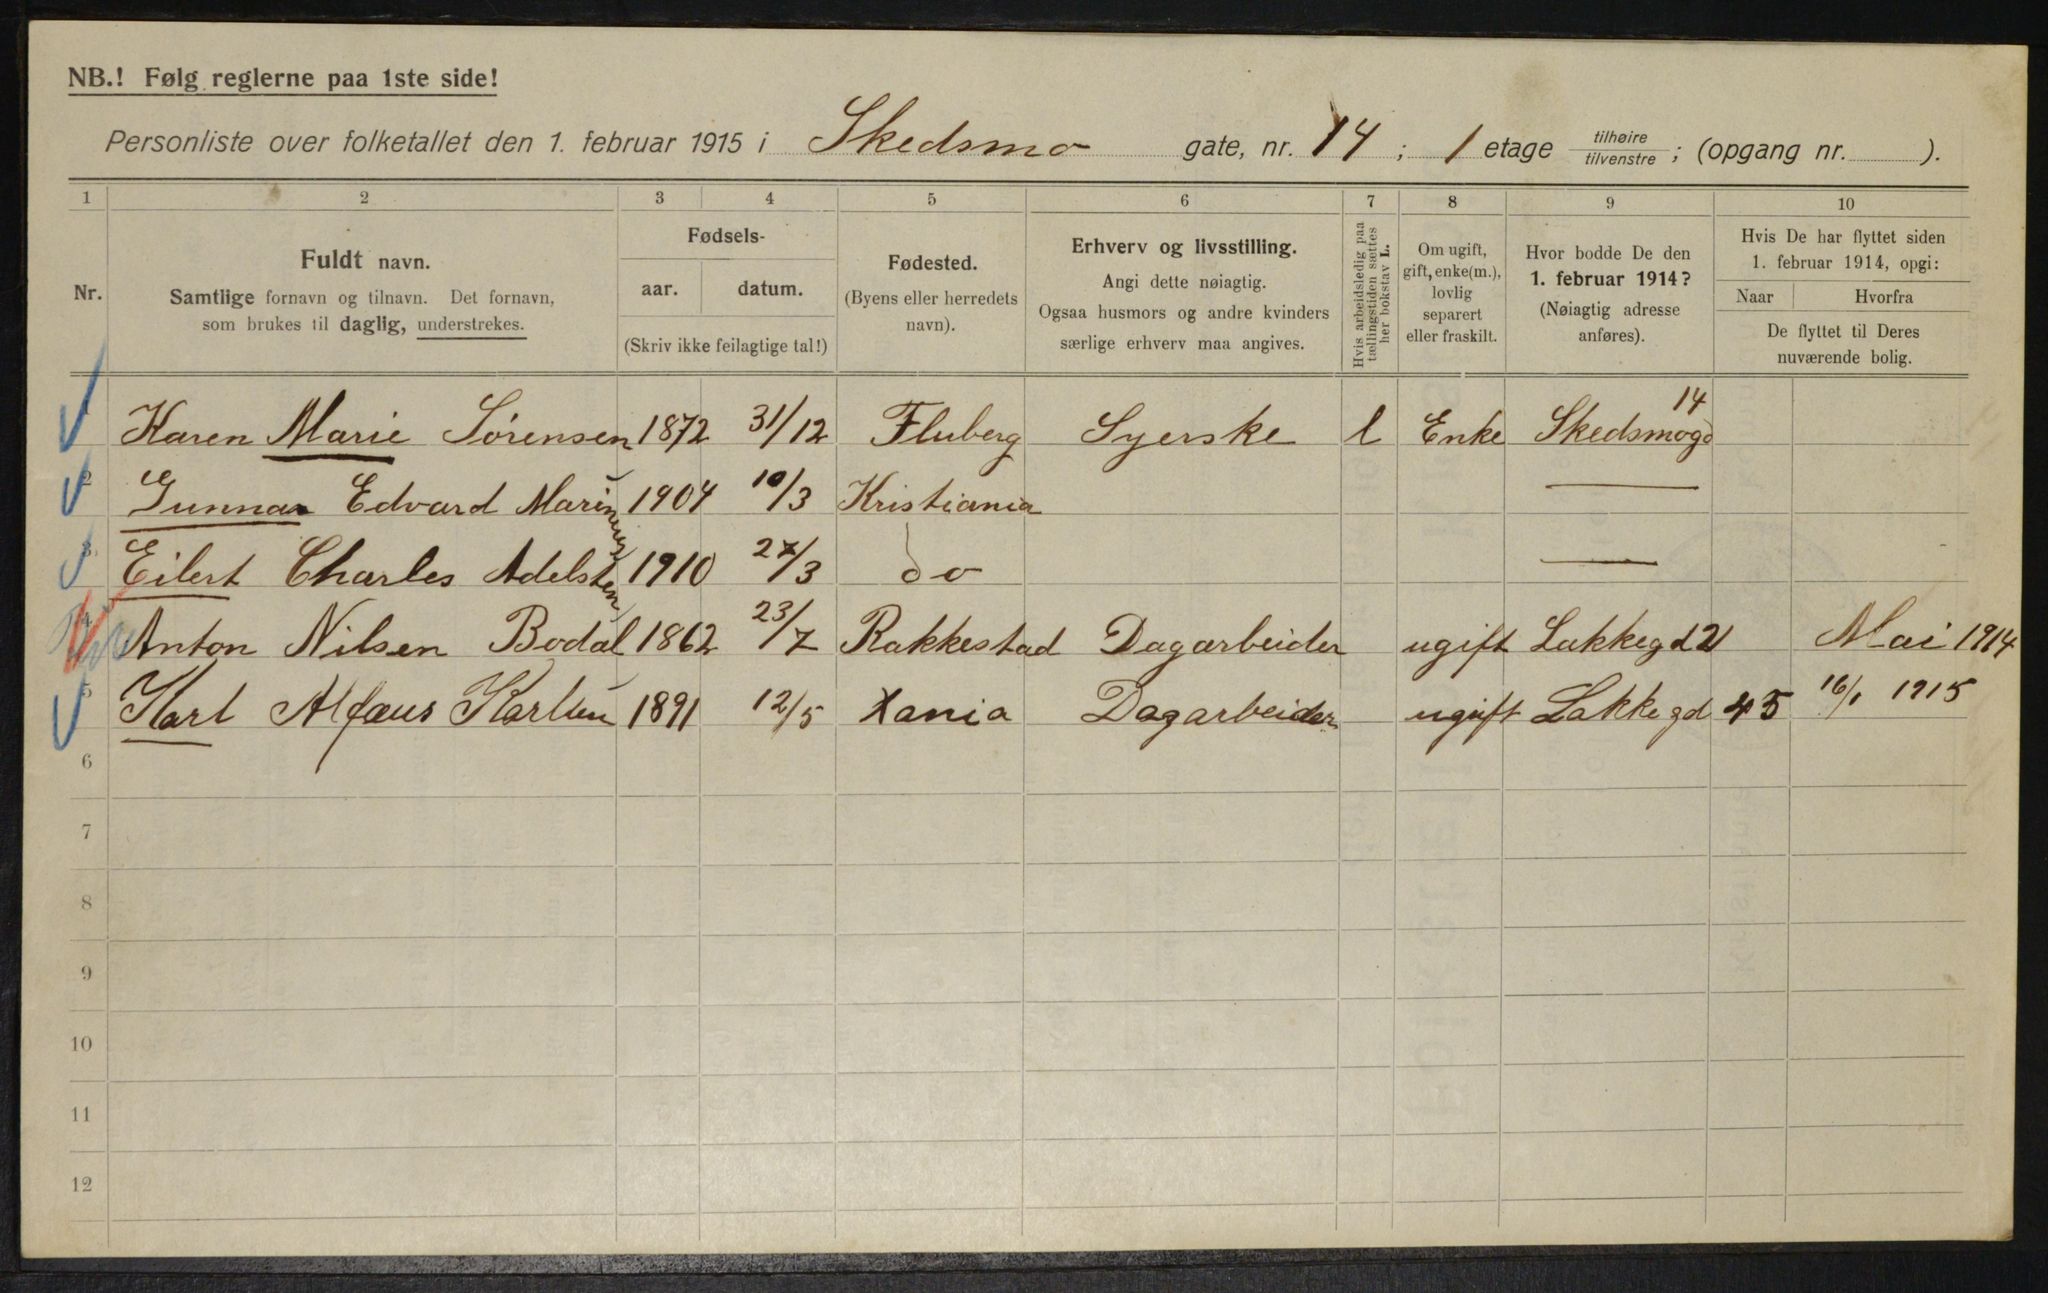 NB.! Følg reglerne paa 1ste side!
Personliste over folketallet den 1. februar 1915 i Skedsmo gate, nr. 14; 1 etage tilhøire tilvenstre; (opgang nr. ).
1 2 3 4 5 6 7 8 9 10
Nr.
Fuldt navn.
Samtlige fornavn og tilnavn. Det fornavn,
som brukes til daglig, understrekes.
Fødsels-
aar. datum.
(Skriv ikke feilagtige tal!)
Fødested.
(Byens eller herredets
navn).
Erhverv og livsstilling.
Angi dette nøiagtig.
Ogsaa husmors og andre kvinders
særlige erhverv maa angives.
Hvis arbeidsledig paa
tællingstiden sættes
her bokstav L.
Om ugift,
gift, enke(m.),
lovlig
separert
eller fraskilt.
Hvor bodde De den
1. februar 1914?
(Nøiagtig adresse
anføres).
Hvis De har flyttet siden
1. februar 1914, opgi:
Naar Hvorfra
De flyttet til Deres
nuværende bolig.
1 Karen Marie Sørensen 1872 31/12 Fluberg Syerske l Enke Skedsmogd 14
2 Gunnar Edvard Marinius 1904 10/3 Kristiania —
3 Eilert Charles Adelsten 1910 27/3 do —
4 Anton Nilsen Bodal 1862 23/7 Rakkestad Dagarbeider ugift Lakkegd 21 Mai 1914
5 Karl Alfæus Karlsen 1891 12/5 Xania Dagarbeider ugift Lakkegd 45 16/1 1915
6
7
8
9
10
11
12